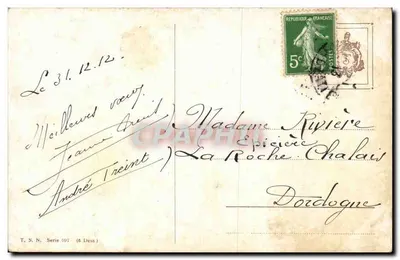 Le 31.12.12.
Meilleures vœux
Jeanne Treint
André Treint
REPUBLIQUE FRANÇAISE
5c
POSTES
Madame Ripière
Epicière
La Roche-Chalais
Dordogne
CPAPHIL
T. S. N. Serie (6 Dess.)